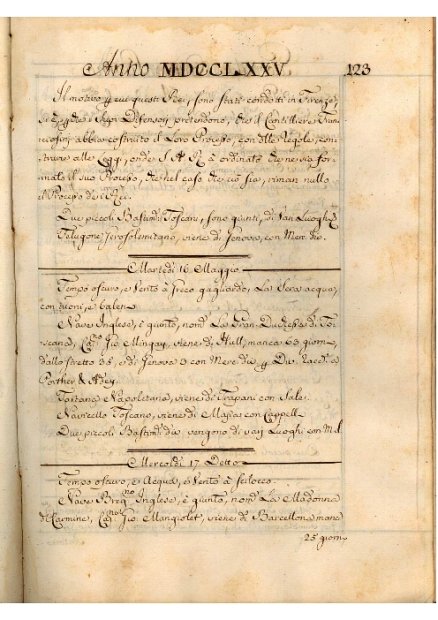 Anno MDCCLXXV. 123
Il motivo, p. cui questi Rei, sono stati condotti in Firenze,
è, che i Loro Defensori pretendono, che il Consilliere
abbia costruito il Loro Processo, con delle Regole, con-
trarie alle Leggi, onde S. A. R. à ordinato che ne sia for-
mato il suo Processo, che nel caso, che ciò sia, riman nullo
il Processo de i Rei.
Due piccoli Bastim.ti Toscani, sono giunti, di Varj Luoghi
Gerosolimitano, viene di Genova, con Merc. div.
Martedì 16 Maggio
Tempo oscuro, e Vento à Greco gagliardo, La Sera acqua,
con tuoni, e balen.
Nave Inglese, è giunto, nom. La Gran Duchessa di To-
scana, Cap.o Gio. Mingay, viene di Hull, manca 63 giorni,
dallo stretto 38, e di Genova 3 con Merc. div. p. Div. Racc. a
Porther, &
Tartana Napoletana, viene di Trapani con Sale.
Navicello Toscano, viene di con Cappell.
Due piccoli Bastim.ti div. vengono di varj Luoghi con M.
Mercoldì 17 Detto
Tempo oscuro, e Acqua, e Vento à scilocco.
Nave Inglese, è giunto, nom. La Madonna
del Carmine, Cap. Gio. Mangiolet, viene di Barcellona manc
25 giorni